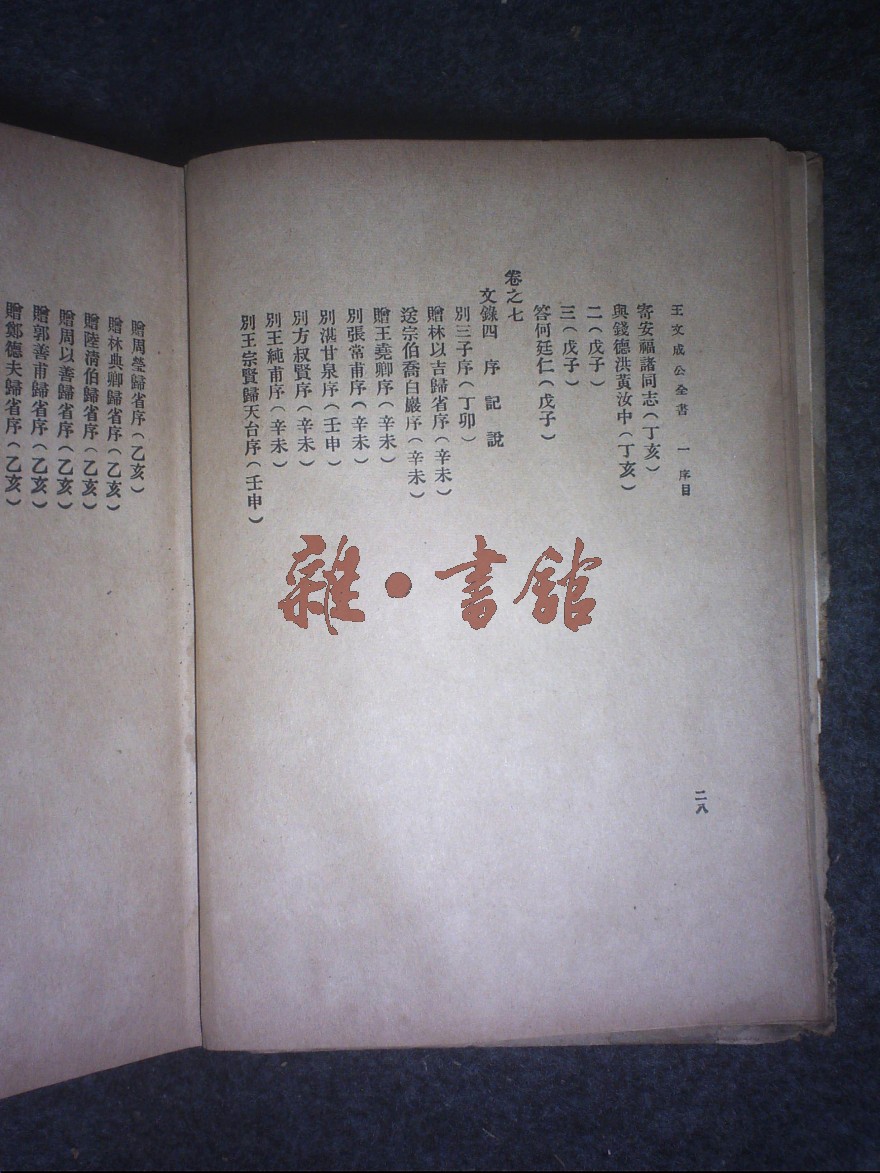 王文成公全書 一 序目
寄安福諸同志(丁亥)
與錢德洪黃汝中(丁亥)
二(戊子)
三(戊子)
答何廷仁(戊子)
卷之七
文錄四 序 記 說
別三子序(丁卯)
贈林以吉歸省序(辛未)
送宗伯喬白巖序(辛未)
贈王堯卿序(辛未)
別張常甫序(辛未)
別湛甘泉序(壬申)
別方叔賢序(辛未)
別王純甫序(辛未)
別王宗賢歸天台序(壬申)
二八
贈周瑩歸省序(乙亥)
贈林典卿歸省序(乙亥)
贈陸清伯歸省序(乙亥)
贈周以善歸省序(乙亥)
贈郭善甫歸省序(乙亥)
贈鄭德夫歸省序(乙亥)
雜·書館